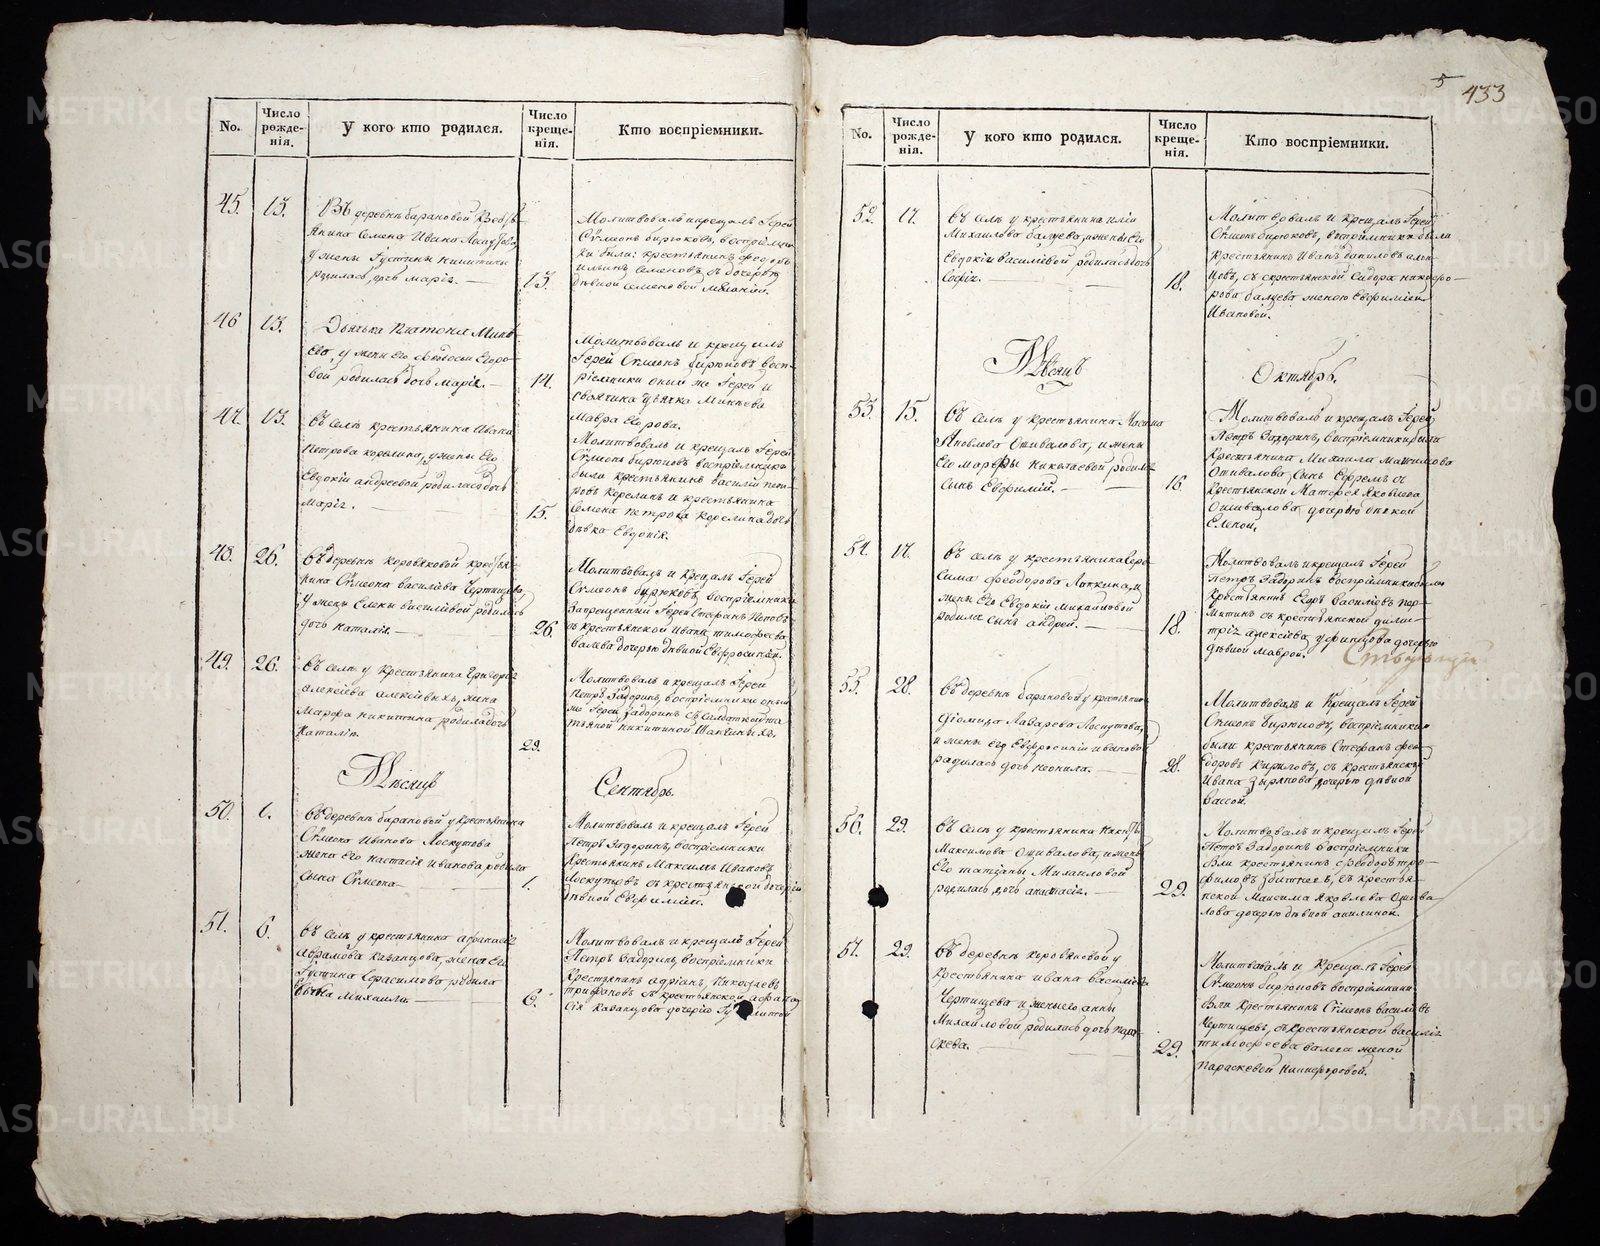 433
No.
Число рожденія.
У кого кто родился.
Число крещенія.
Кто воспріемники.
45.
13.
Въ деревнѣ барановой
Семена Ивана
родилась дочь марія.
13.
Молитвовалъ и крещалъ Іерей
Сѵмеонъ бирюковъ, воспріемни-
ки были: крестьянинъ
46
13.
Дьячька Платона
ево, у жены его Егоро-
вой родилась дочь марія.
14.
Молитвовалъ и крещалъ
Іерей Сѵмеонъ бирюковъ восп-
ріемники оный же Іерей и
Мавра Егорова.
47.
13.
въ селѣ крестьянина Ивана
Петрова корелина, у жены его
Евдокіи андреевой родилась дочь
марія.
15.
Молитвовалъ и крещалъ Іерей
Сѵмеонъ бирюковъ воспріемники
были крестьянинъ василій пет-
ровъ Корелинъ и крестьянина
Семена петрова Корелина дочь
дѣвка Евдокія.
48.
26.
въ деревнѣ коровяковой
Сѵмеона василіева Чертищева
у жены Елены василіевой родилась
дочь наталія.
26.
Молитвовалъ и крещалъ Іерей
Сѵмеонъ бирюковъ, воспріемники
Запрещенный Іерей Стефанъ Поповъ
съ крестьянской Ивана тимофеева
валева дочерью дѣвкой Евфросиніей.
49.
26.
въ селѣ у крестьянина Григорія
алексіева алексіевыхъ, жена
Марфа никитина родила дочь
Наталію.
29.
Молитвовалъ и крещалъ Іерей
Петръ Задоринъ, воспріемники оный
же Іерей Задоринъ съ солдаткой та-
тьяной никитиной
Мѣсяцъ
Сентябрь.
50.
1.
въ деревнѣ барановой у крестьянина
Сѵмеона Иванова Лоскутова
жена его настасія Иванова родила
сына Сѵмеона
1.
Молитвовалъ и крещалъ Іерей
Петръ Задоринъ, воспріемники
крестьянинъ Максимъ Ивановъ
Лоскутовъ съ крестьянской дочерью
дѣвкой Евфиміей.
51.
6.
въ селѣ у крестьянина афанасія
аврамова казанцова, жена его
Іустина Герасимова родила
сына Михаила.
6.
Молитвовалъ и крещалъ Іерей
Петръ Задоринъ, воспріемники
крестьянинъ адріанъ Николаевъ
трифановъ съ крестьянской афана-
сія казанцова дочерью
No.
Число рожденія.
У кого кто родился.
Число крещенія.
Кто воспріемники.
52.
17.
въ селѣ у крестьянина иліи
Михаилова балуева, жены его
Евдокіи василіевой родилась дочь
Софія.
18.
Молитвовалъ и крещалъ Іерей
Сѵмеонъ бирюковъ, воспріемники были
крестьянинъ Иванъ даниловъ
съ крестьянской Сидора никифо-
рова балуева женою Евфиміей
Ивановой.
Мѣсяцъ
Октябрь.
53.
15.
въ селѣ у крестьянина Максима
Яковлева Ошивалова, и жены
его марфы николаевой родился
сынъ Евфимій.
16.
Молитвовалъ и крещалъ Іерей
Петръ Задоринъ, воспріемники были
крестьянина Михаила
Ошивалова сынъ Ефремъ съ
крестьянской Матфея Яковлева
Ошивалова дочерью дѣвкой
Еленой.
54.
17.
въ селѣ у крестьянина Гера-
сима феодорова Липкина, и
жены его Евдокіи михаиловой
родился сынъ андрей.
18.
Молитвовалъ и крещалъ Іерей
Петръ Задоринъ воспріемники были
крестьянинъ Егоръ василіевъ пер-
мятинъ съ крестьянской дими-
трія алексіева уфинцова дочерью
дѣвкой маврой.
55.
28.
въ деревнѣ барановой у крестьянина
діомида Лазарева Лоскутова,
и жены его Евфросиніи ивановой
родилась дочь неонила.
28.
Молитвовалъ и Крещалъ Іерей
Сѵмеонъ бирюковъ, воспріемники
были крестьянинъ Стефанъ фео-
доровъ Кириловъ, съ крестьянской
Ивана зырянова дочерью дѣвкой
вассой.
56.
29.
въ селѣ у крестьянина
Максимова Ошивалова, и жены
его татіаны Михаиловой
родилась дочь анастасія.
29.
Молитвовалъ и крещалъ Іерей
Петръ Задоринъ воспріемники
были крестьянинъ Феодоръ тро-
фимовъ съ крестья-
нской Максима Яковлева Ошива-
лова дочерью дѣвкой
57.
29.
въ деревнѣ коровяковой у
крестьянина ивана василіева
Чертищева и жены его анны
Михайловой родилась дочь пара-
скева.
29.
Молитвовалъ и крещалъ Іерей
Сѵмеонъ бирюковъ воспріемники
были крестьянинъ Сѵмеонъ василіевъ
Чертищевъ, съ крестьянской василія
тимофеева валева женой
параскевой Никифоровой.